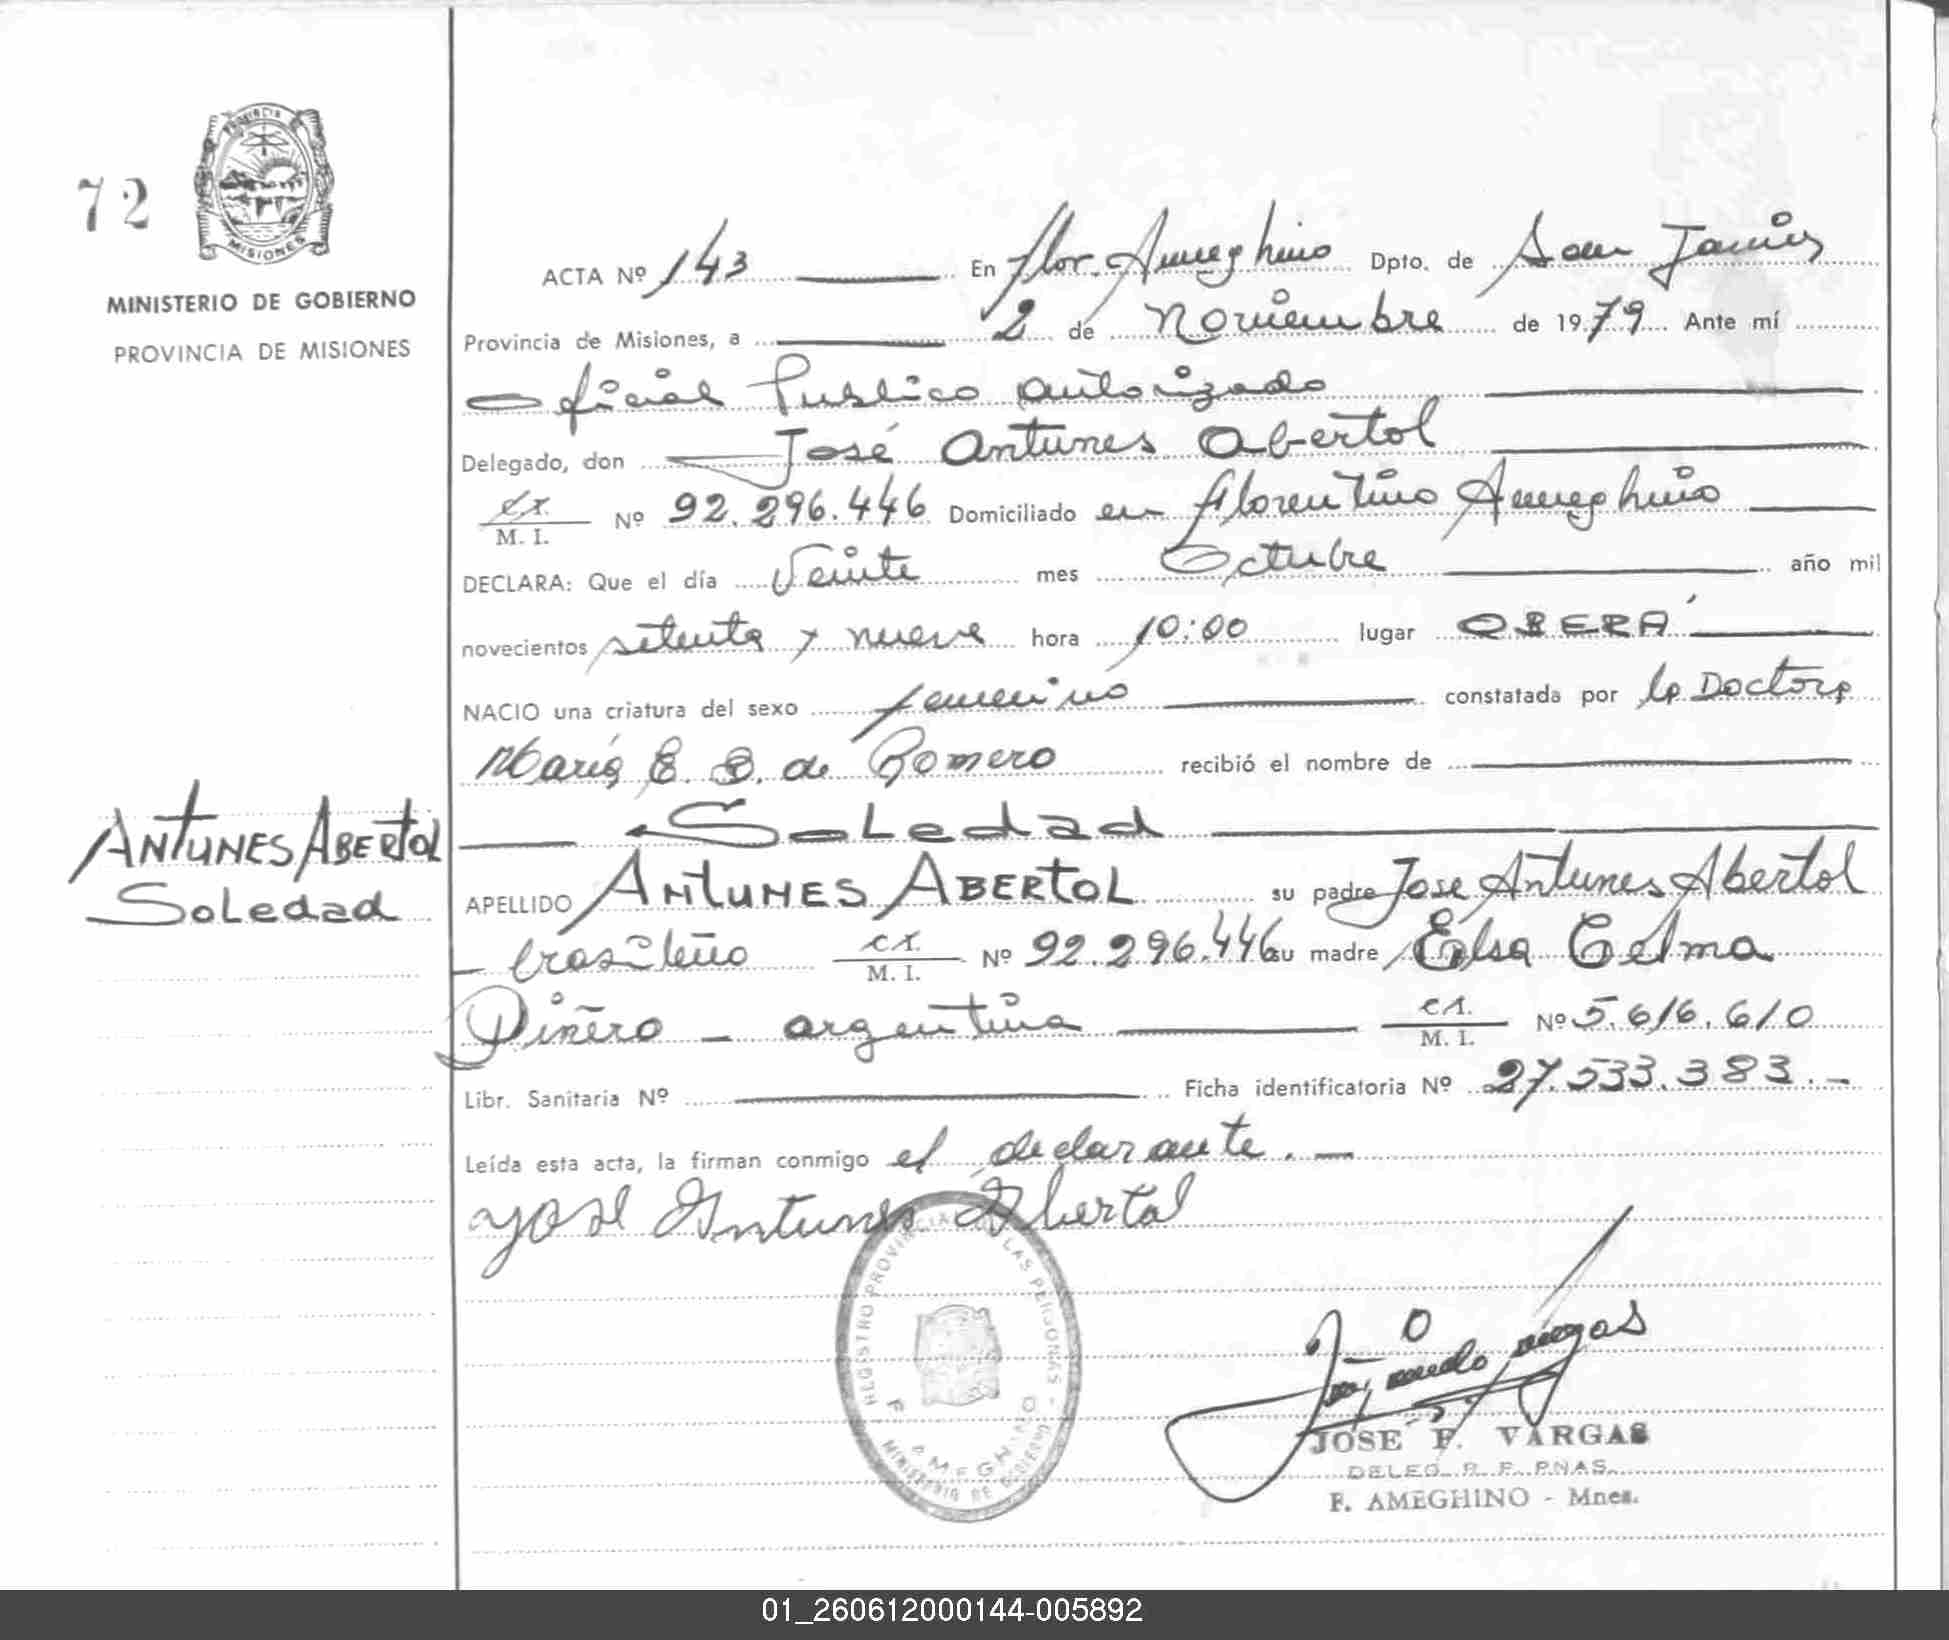 72
PROVINCIA
MISIONES
MINISTERIO DE GOBIERNO
PROVINCIA DE MISIONES
ACTA Nº 143 En Flor. Ameghino Dpto. de San Javier
Provincia de Misiones, a 2 de Noviembre de 1979 Ante mí
Oficial Publico autorizado
Delegado, don José Antunes Abertol
C.I.
M. I. Nº 92.296.446 Domiciliado en Florentino Ameghino
DECLARA: Que el día Veinte mes Octubre año mil
novecientos setenta y nueve hora 10:00 lugar OBERÁ
NACIO una criatura del sexo femenino constatada por la Doctora
María E. B. de Romero recibió el nombre de
Soledad
ANTUNES ABERTOL
Soledad
APELLIDO ANTUNES ABERTOL su padre Jose Antunes Abertol
- brasileño C.I.
M. I. Nº 92.296.446 su madre Elsa Celma
Piñero - argentina C.I.
M. I. Nº 5.616.610
Libr. Sanitaria Nº Ficha identificatoria Nº 27.533.383.-
Leída esta acta, la firman conmigo el declarante.-
José Antunes Abertol
REGISTRO PROVINCIAL DE LAS PERSONAS - MINISTERIO DE GOBIERNO
F. AMEGHINO
JOSE F. VARGAS
DELEG. R. P. PNAS.
F. AMEGHINO - Mnes.
01_260612000144-005892